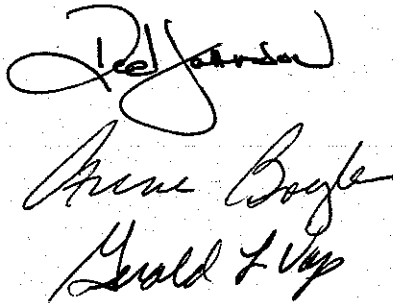 Rod Johnson
Anne Boyle
Gerald L Vap